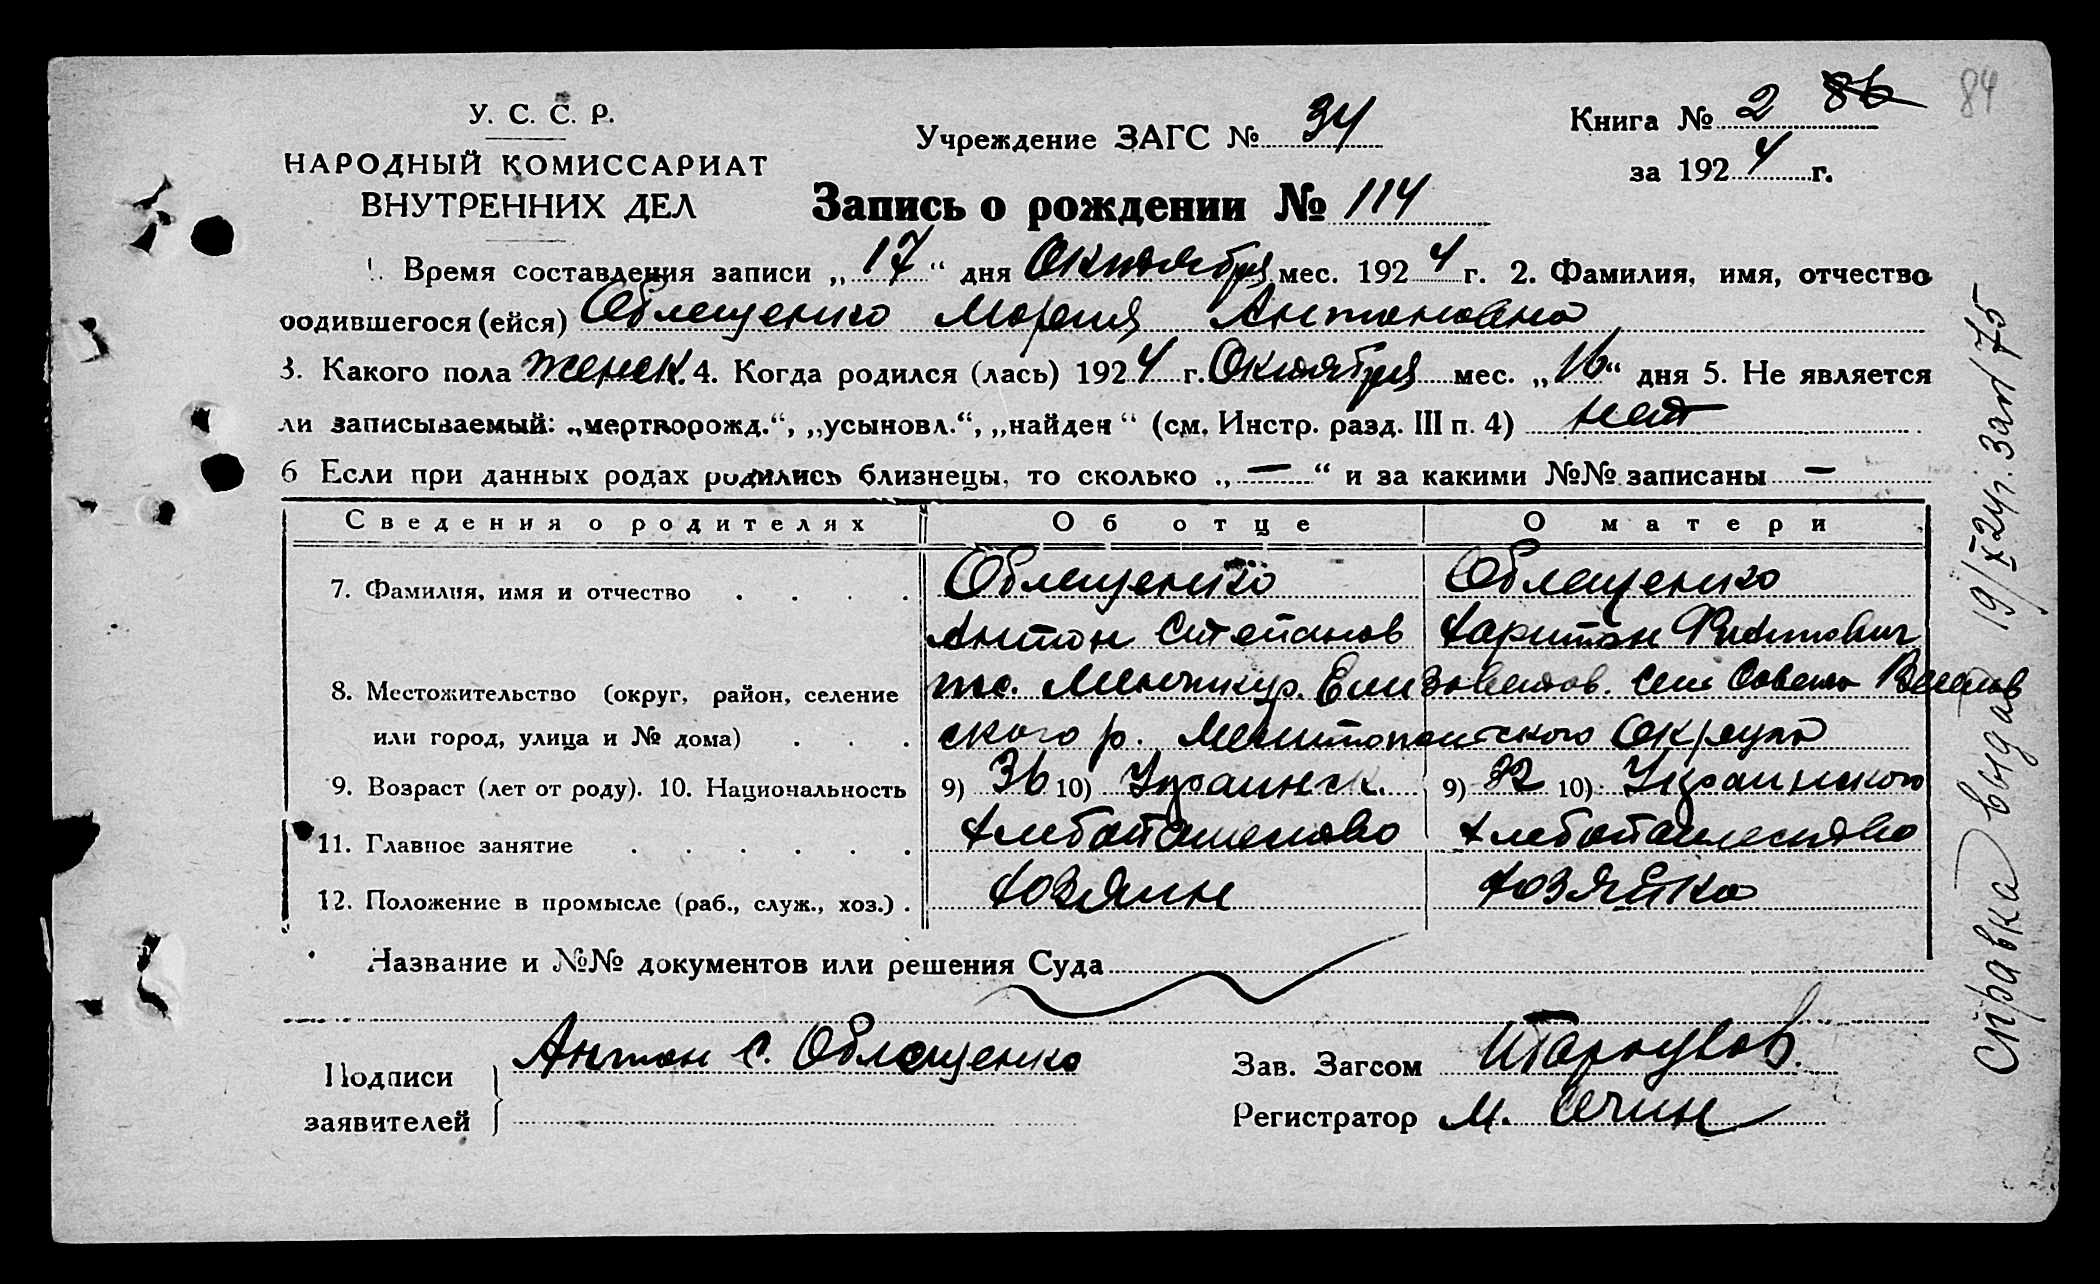 У. С. С. Р.
НАРОДНЫЙ КОМИССАРИАТ
ВНУТРЕННИХ ДЕЛ
Учреждение ЗАГС № 34
Книга № 2 86
84
за 1924 г.
Запись о рождении № 114
1. Время составления записи „17“ дня Октября мес. 1924 г. 2. Фамилия, имя, отчество
родившегося (ейся) Облещенко Мария Антоновна
3. Какого пола женск. 4. Когда родился (лась) 1924 г. Октября мес. „16“ дня 5. Не является
ли записываемый: „мертворожд.“, „усыновл.“, „найден“ (см. Инстр. разд. III п. 4) нет
6 Если при данных родах родились близнецы, то сколько „—“ и за какими №№ записаны —
Сведения о родителях Об отце О матери
7. Фамилия, имя и отчество . . . . Облещенко Облещенко
Антон Степанов Харитон
8. Местожительство (округ, район, селение
с. Менчикур. Елизаветов. Сель Совета Веселов
или город, улица и № дома) . . . ского р. Мелитопольского Округа
9. Возраст (лет от роду). 10. Национальность 9) 36 10) Украинск. 9) 32 10) Украинского
11. Главное занятие . . . . . . Хлебопашество Хлебопашество
12. Положение в промысле (раб., служ., хоз.) . Хозяин Хозяйка
Название и №№ документов или решения Суда
Подписи
заявителей
Антон С. Облещенко
Зав. Загсом
Регистратор М.
Справка выдана 19/X 24 г. за № 75